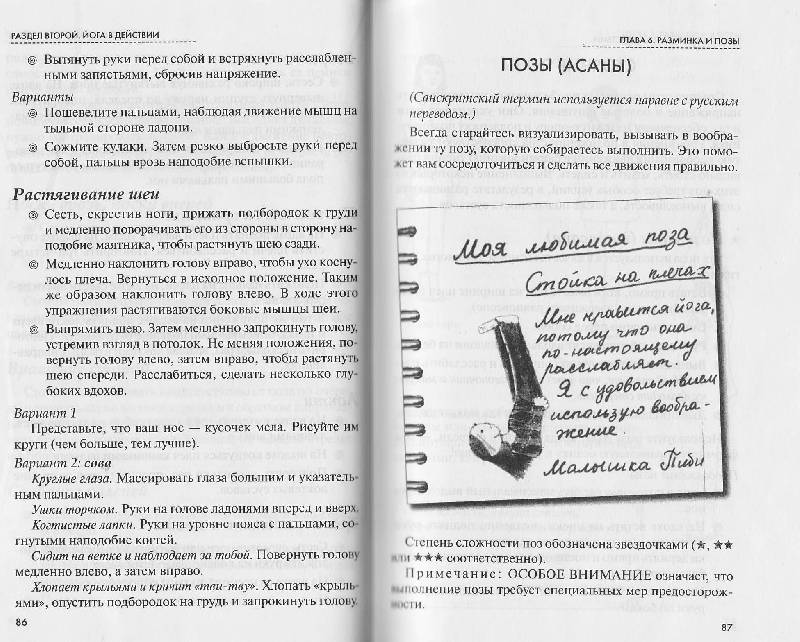 РАЗДЕЛ ВТОРОЙ. ЙОГА В ДЕЙСТВИИ
Вытянуть руки перед собой и встряхнуть расслаблен-
ными запястьями, сбросив напряжение.
Варианты
Пошевелите пальцами, наблюдая движение мышц на
тыльной стороне ладони.
Сожмите кулаки. Затем резко выбросьте руки перед
собой, пальцы врозь наподобие вспышки.
Растягивание шеи
Сесть, скрестив ноги, прижать подбородок к груди
и медленно поворачивать его из стороны в сторону на-
подобие маятника, чтобы растянуть шею сзади.
Медленно наклонить голову вправо, чтобы ухо косну-
лось плеча. Вернуться в исходное положение. Таким
же образом наклонить голову влево. В ходе этого
упражнения растягиваются боковые мышцы шеи.
Выпрямить шею. Затем медленно запрокинуть голову,
устремив взгляд в потолок. Не меняя положения, по-
вернуть голову влево, затем вправо, чтобы растянуть
шею спереди. Расслабиться, сделать несколько глу-
боких вдохов.
Вариант 1
Представьте, что ваш нос — кусочек мела. Рисуйте им
круги (чем больше, тем лучше).
Вариант 2: сова
Круглые глаза. Массировать глаза большим и указатель-
ным пальцами.
Ушки торчком. Руки на голове ладонями вперед и вверх.
Костистые лапки. Руки на уровне пояса с пальцами, со-
гнутыми наподобие когтей.
Сидит на ветке и наблюдает за тобой. Повернуть голову
медленно влево, а затем вправо.
Хлопает крыльями и кричит «тви-тву». Хлопать «крыль-
ями», опустить подбородок на грудь и запрокинуть голову.
86
ГЛАВА 6. РАЗМИНКА И ПОЗЫ
ПОЗЫ (АСАНЫ)
(Санскритский термин используется наравне с русским
переводом.)
Всегда старайтесь визуализировать, вызывать в вообра-
жении ту позу, которую собираетесь выполнить. Это помо-
жет вам сосредоточиться и сделать все движения правильно.
Моя любимая поза
Стойка на плечах
Мне нравится йога,
потому что она
по-настоящему
расслабляет.
Я с удовольствием
использую вообра-
жение.
Малышка Пиби
Степень сложности поз обозначена звездочками (★, ★★
или ★★★ соответственно).
Примечание: ОСОБОЕ ВНИМАНИЕ означает, что
выполнение позы требует специальных мер предосторож-
ности.
87